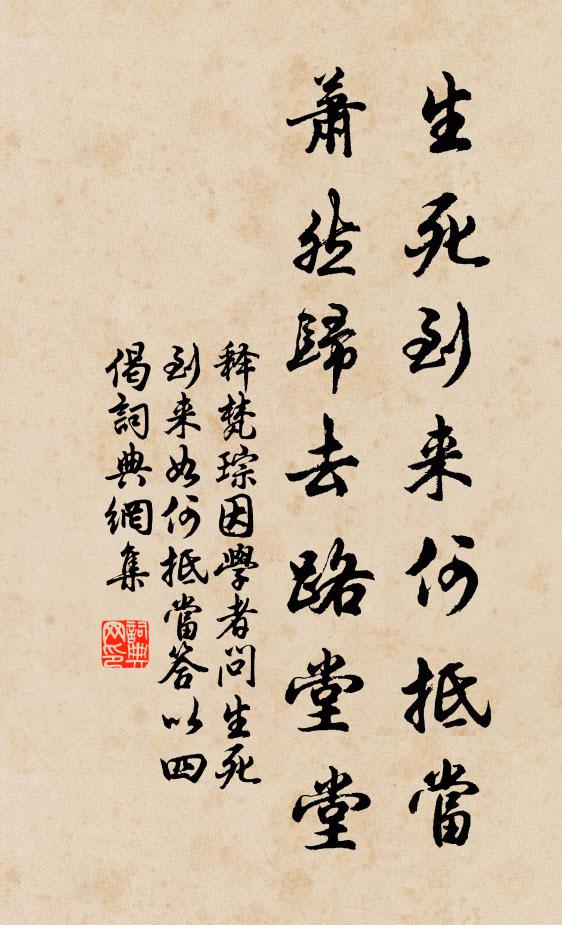 生死到来何抵當
蕭然歸去路堂堂
释梵琮因學者问生死
到来如何抵當答以四
偈詞典網集
詞典网印